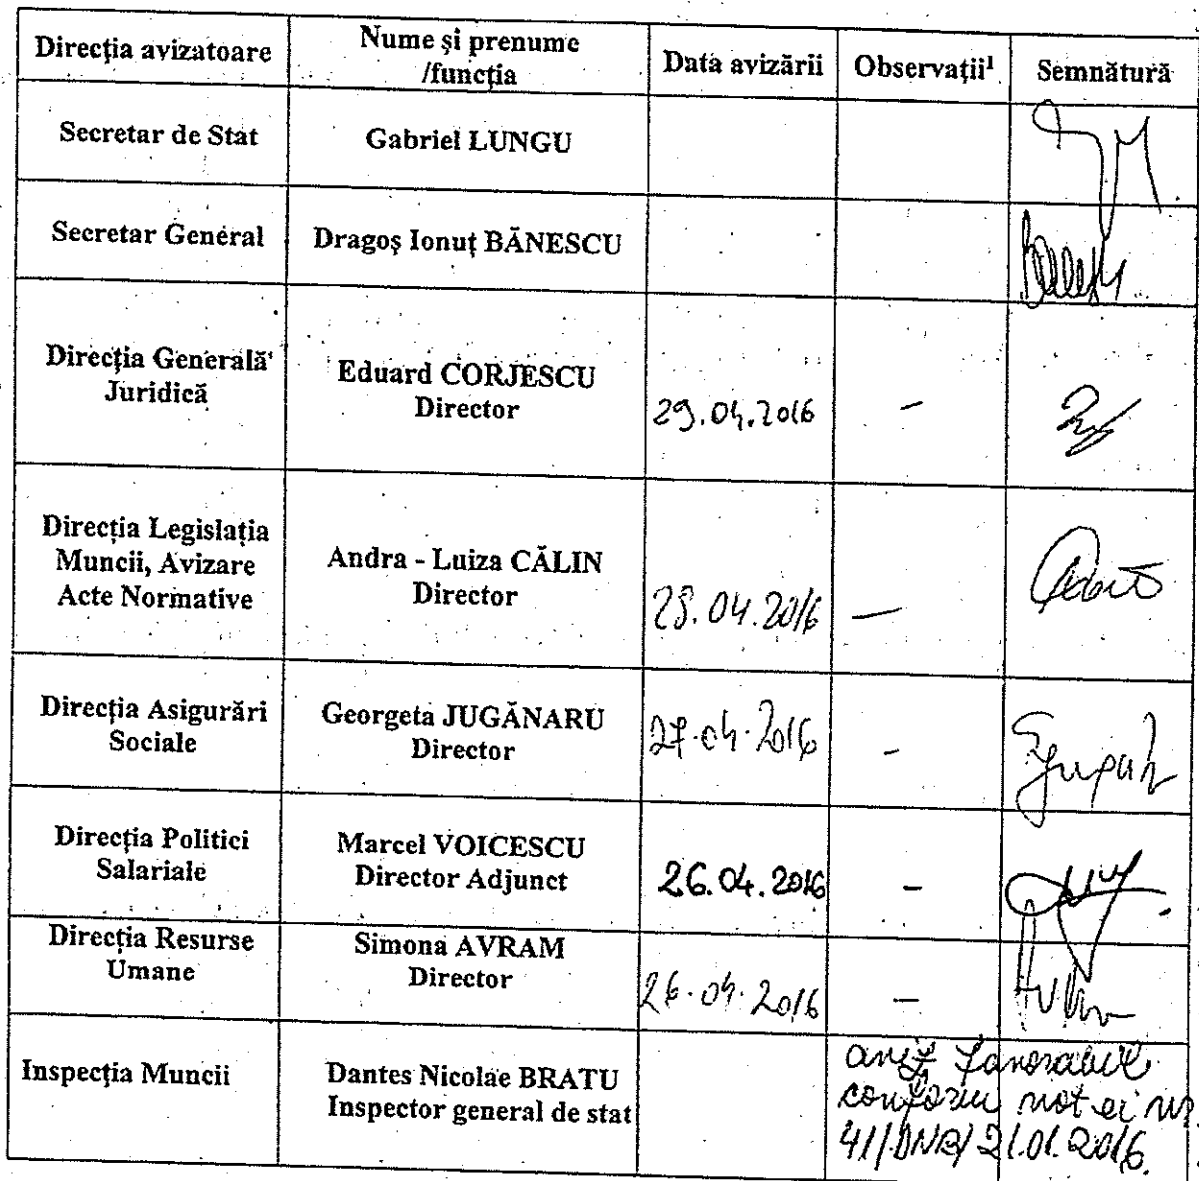 Direcția avizatoare
Nume și prenume
/funcția
Data avizării
Observații¹
Semnătură
Secretar de Stat
Gabriel LUNGU
Secretar General
Dragoș Ionuț BĂNESCU
Direcția Generală
Juridică
Eduard CORJESCU
Director
29.04.2016
-
Direcția Legislația
Muncii, Avizare
Acte Normative
Andra - Luiza CĂLIN
Director
28.04.2016
-
Direcția Asigurări
Sociale
Georgeta JUGĂNARU
Director
27.04.2016
-
Direcția Politici
Salariale
Marcel VOICESCU
Director Adjunct
26.04.2016
-
Direcția Resurse
Umane
Simona AVRAM
Director
26.04.2016
-
Inspecția Muncii
Dantes Nicolae BRATU
Inspector general de stat
aviz favorabil
conform notei nr.
41/DNB/21.01.2016.